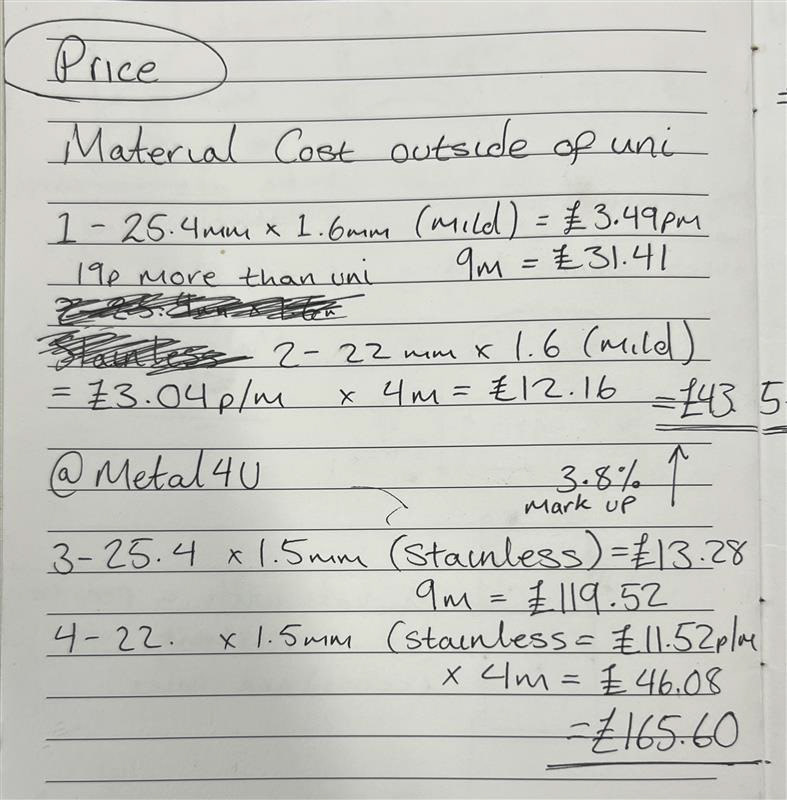 Price
Material Cost outside of uni
1 - 25.4mm x 1.6mm (mild) = £3.49pm
19p more than uni 9m = £31.41
Stainless 2 - 22mm x 1.6 (mild)
= £3.04p/m x 4m = £12.16 = £43.5
@Metal4U 3.8% ↑
Mark up
3 - 25.4 x 1.5mm (Stainless) = £13.28
9m = £119.52
4 - 22. x 1.5mm (Stainless = £11.52p/m
x 4m = £46.08
= £165.60